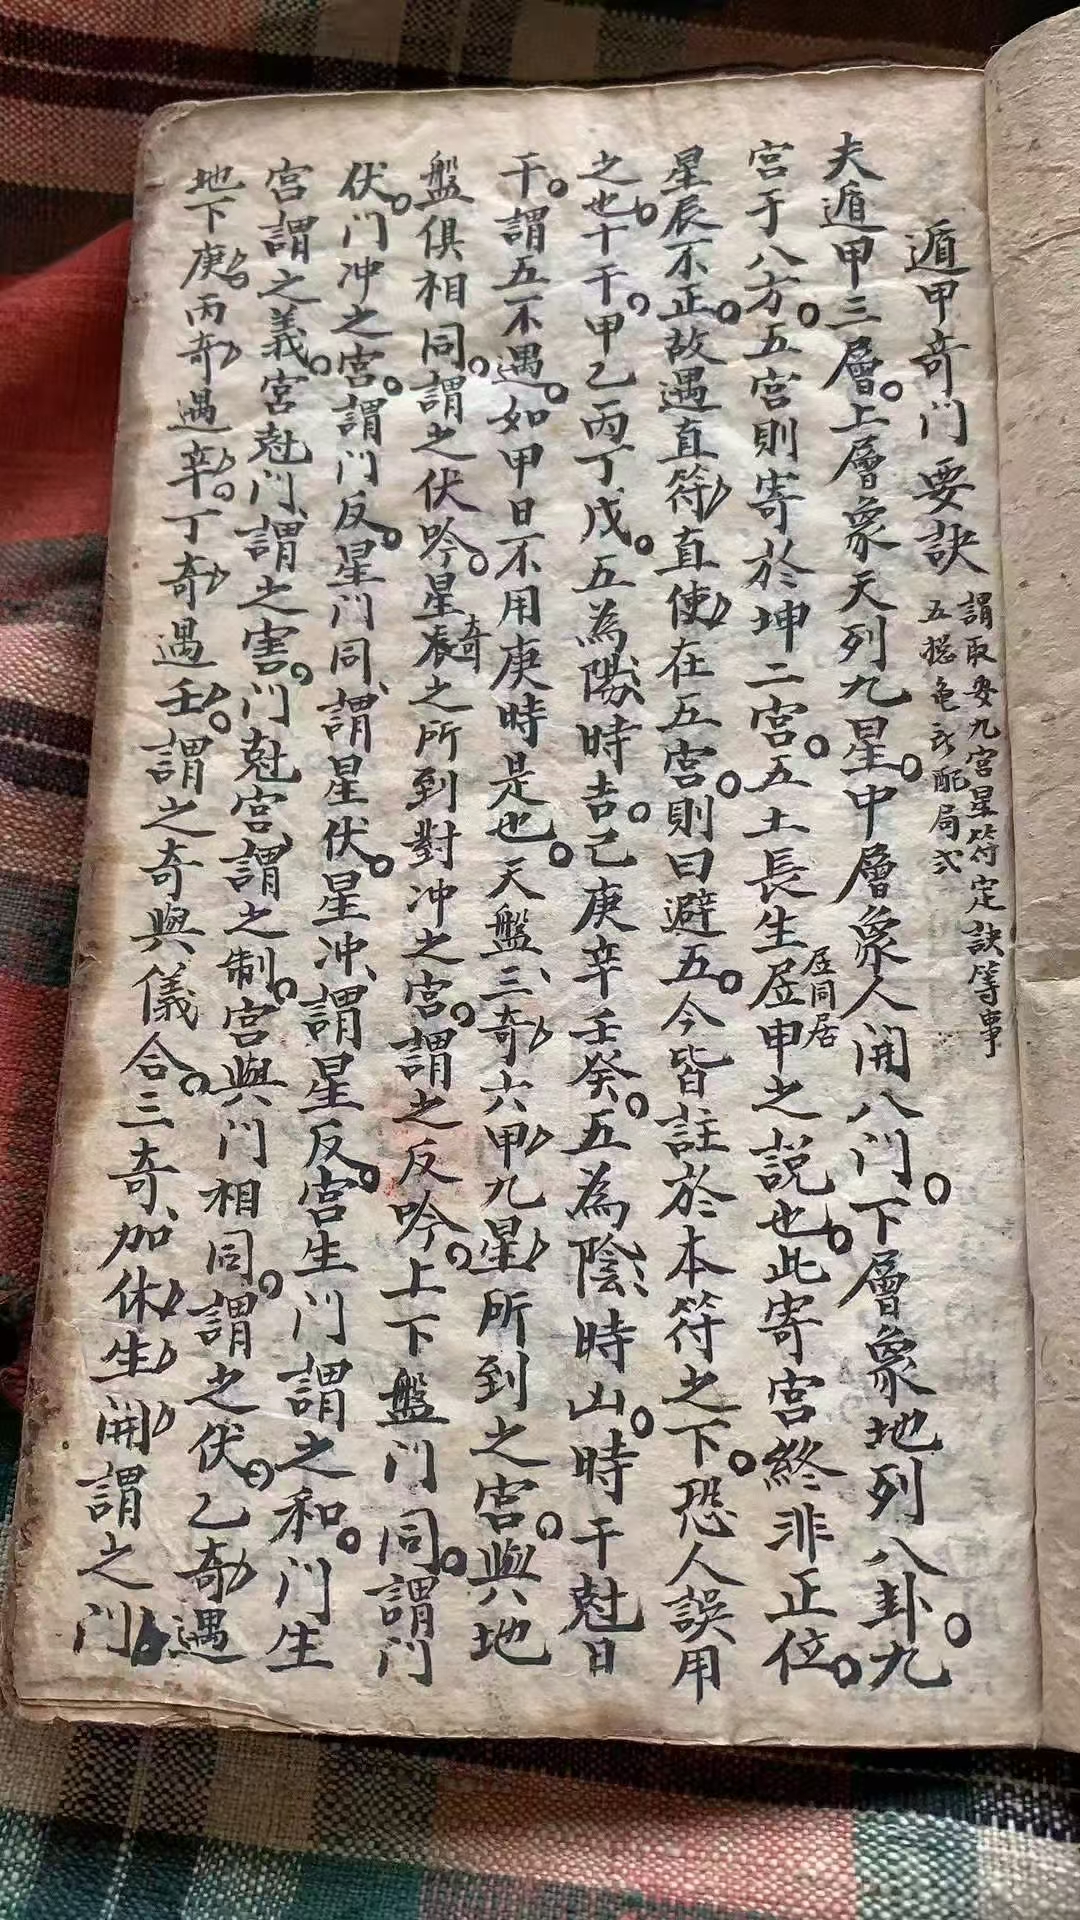 遁甲奇門要訣
謂取安九宮星符定訣等事
五
配局式
夫遁甲三層。上層象天列九星。中層象人開八门。下層象地列八卦。九
宮于八方。五宮則寄於坤二宮。五土長生居申之説也。此寄宮終非正位。
居同居
星辰不正。故遇直符直使在五宮。則曰避五。今皆註於本符之下。恐人誤用
之也。十干。甲乙丙丁戊。五為陽時吉。己庚辛壬癸。五為陰時凶。時干尅日
干。謂五不遇。如甲日不用庚時是也。天盤三奇六甲九星所到之宮。與地
盤俱相同。謂之伏吟。星奇之所到對冲之宮。謂之反吟。上下盤门同。謂门
伏。门冲之宮。謂门反。星门同、謂星伏。星冲、謂星反。宮生门謂之和。门生
宮謂之義。宮尅门、謂之害。门尅宮、謂之制。宮與门相同。謂之伏。乙奇遇
地下庚。丙奇遇辛。丁奇遇壬。謂之奇與儀合。三奇、加休生開謂之门